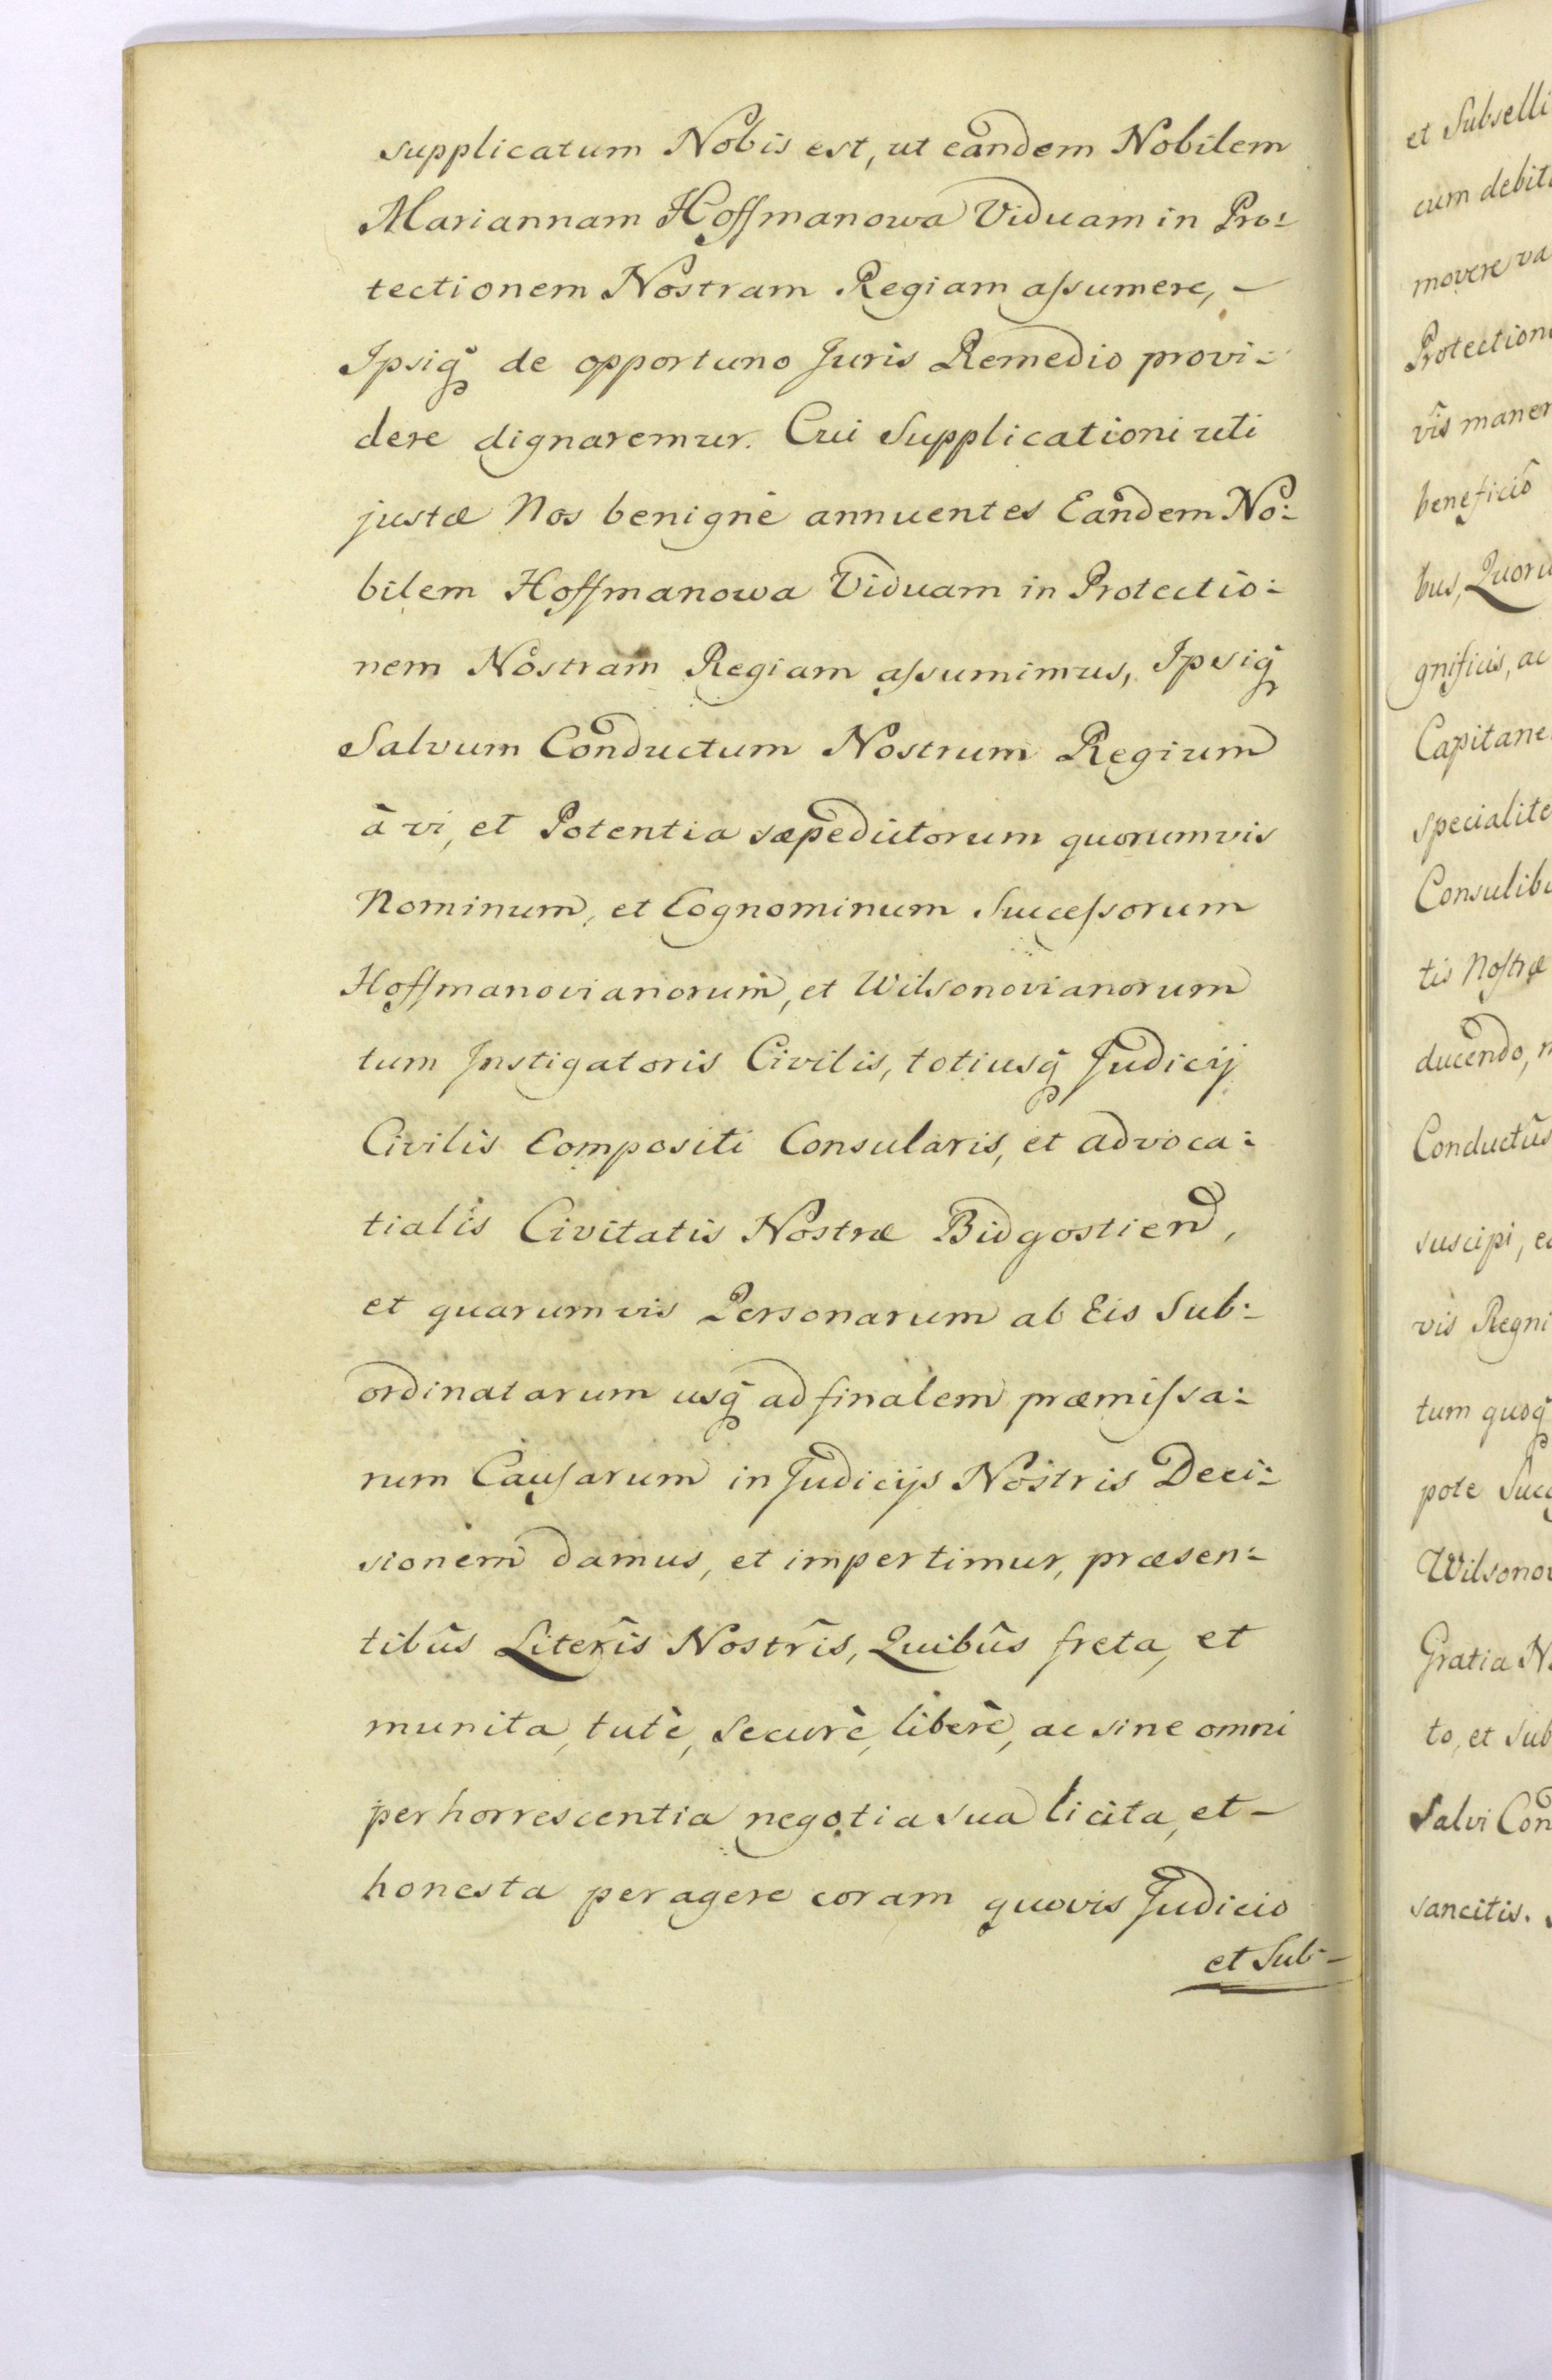 supplicatum Nobis est, ut eandem Nobilem
Mariannam Hoffmanowa Viduam in Pro:
tectionem Nostram Regiam aſsumere, -
Ipsiq̃ de opportuno Juris Remedio provi:
dere dignaremur. Cui Supplicationi uti
justæ Nos benignè annuentes Eandem No:
bilem Hoffmanowa Viduam in Protectio:
nem Nostram Regiam aſsumimus, Ipsiq̃
Salvum Conductum Nostrum Regium
à vi, et Potentia sæpedictorum quorumvis
Nominum, et Cognominum Succeſsorum
Hoffmanovianorum, et Wilsonovianorum
tum Instigatoris Civilis, totiusq̃ Judicij
Civilis Compositi Consularis, et advoca:
tialis Civitatis Nostræ Bidgostien,
et quarumvis Personarum ab Eis Sub:
ordinatarum usq̃ ad finalem præmiſsa:
rum Cauſarum in Judicijs Nostris Deci:
sionem damus, et impertimur, præsen:
tibûs Literîs Nostrîs, Quibûs freta, et
munita, tutè, securè, liberè, ac sine omni
perhorrescentia negotia sua licita, et -
honesta peragere coram quovis Judicio
et Sub-
et Subselli
cum debit
movere va
Protection
vîs maner
beneficiô
bus, Quoru
gnificis, ac
Capitane
specialite
Consulibu
tis Noſtræ
ducendo, 
Conductûs
suscipi, e
vis Regni
tum quoq̃
pote Succ
Wilsonov
Gratia N
to, et sub
Salvi Con
sancitis.